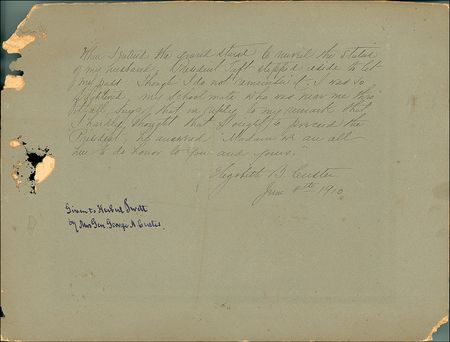 When I entered the grand stand to unveil the statue
of my husband, President Taft stepped aside to let
me pass. Though I do not remember it - I was so
frightened, my school mate who was near me
says that in reply to my remark that
I hardly thought that I ought to precede the
President, he answered "Madam we are all
here to do honor to you and yours."
Elizabeth B. Custer
June 4th 1910.
Given to Herbert Swett
by Mrs Gen. George A. Custer